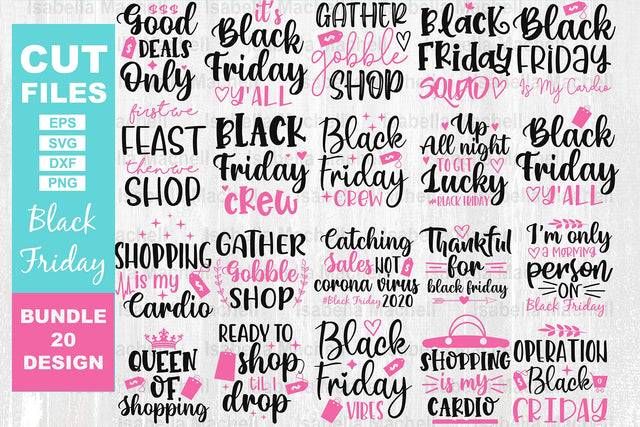 CUT
FILES
EPS
SVG
DXF
PNG
Black
Friday
BUNDLE
20
DESIGN
Good
DEALS
Only
it's
Black
Friday
Y'ALL
GATHER
gobble
SHOP
Black
FRiday
SQUAD
Black
FRiDAY
Is My Cardio
first we
FEAST
then we
SHOP
BLACK
Friday
CREW
Black
Friday
CREW
Up
All night
TO GET
Lucky
#BLACK FRIDAY
Black
Friday
Y'ALL
SHOPPING
is my
Cardio
GATHER
Gobble
SHOP
Catching
Sales NOT
corona virus
#Black Friday 2020
Thankful
for
black friday
I'm only
A MORNING
person
ON
Black Friday
QUEEN
OF
Shopping
READY TO
shop
til I
drop
Black
Friday
VIBES
SHOPPING
is my
CARDIO
OPERATION
Black
FRIDAY
Isabella Machell